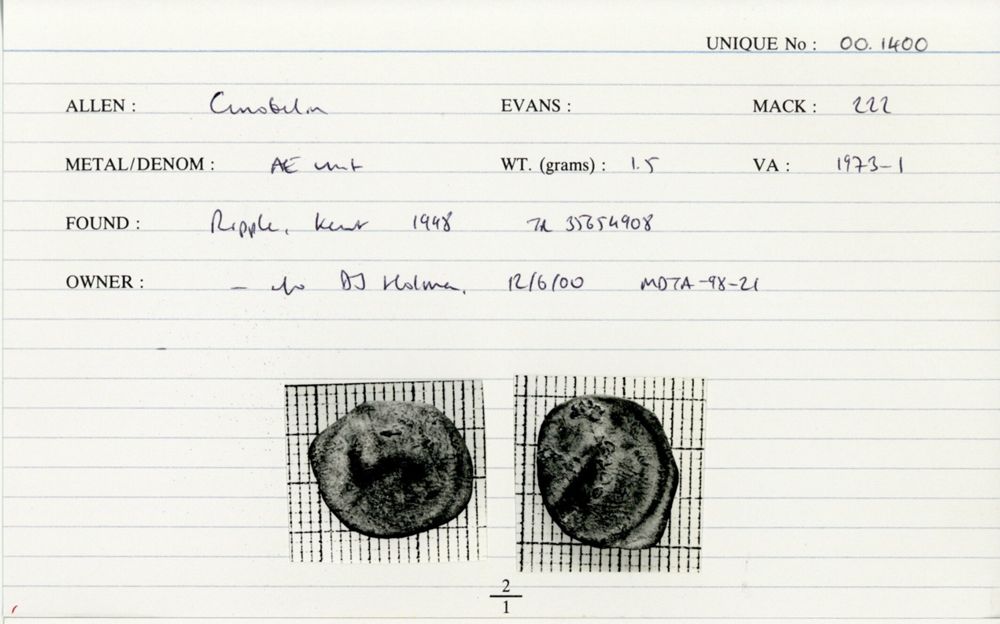 UNIQUE No : 00.1400
ALLEN : Cunobelin EVANS : MACK : 222
METAL/DENOM : AE unit WT. (grams) : 1.5 VA : 1973-1
FOUND : Ripple, Kent 1998 TR 35654908
OWNER : – c/o DJ Holman, 12/6/00 MDTA-98-21
2
1